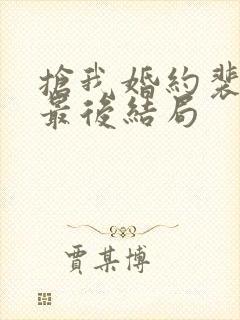 搶我婚約裴
最後結局
賈某博